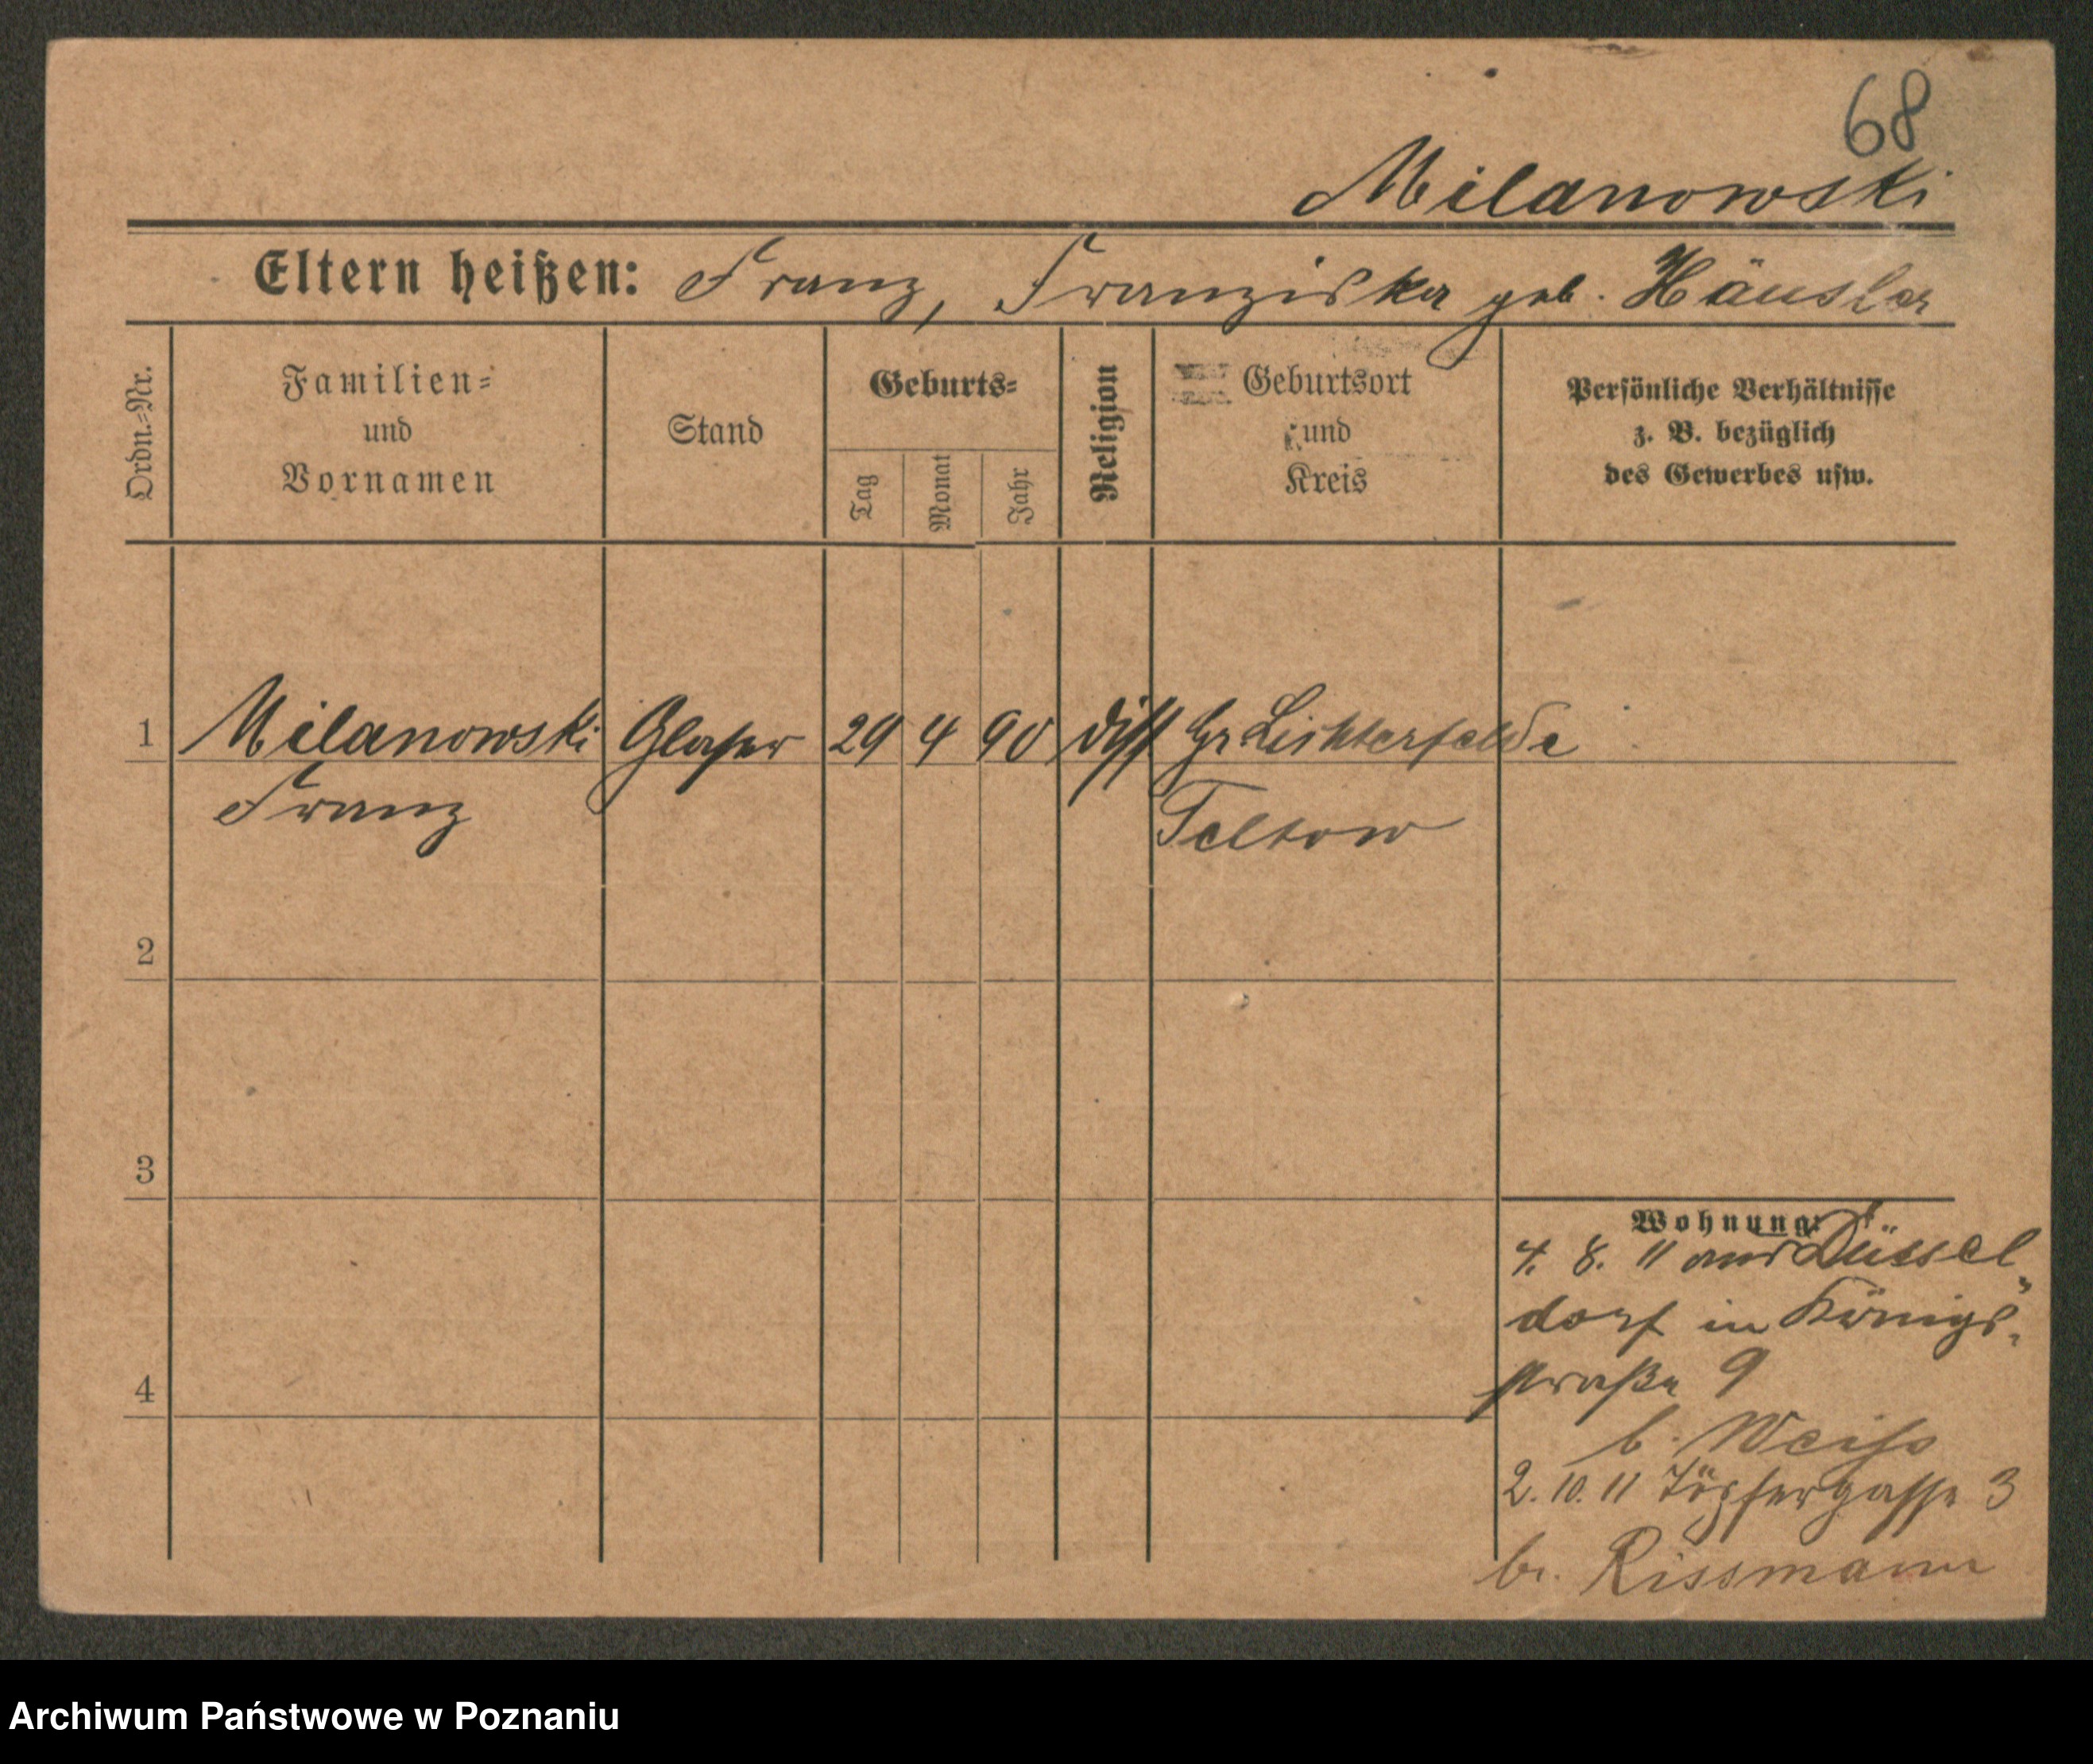 68
Milanowski
Eltern heißen: Franz, Franziska geb. Häusler
Ordn.-Nr.
Familien-
und
Vornamen
Stand
Geburts-
Tag
Monat
Jahr
Religion
Geburtsort
und
Kreis
Persönliche Verhältnisse
z. B. bezüglich
des Gewerbes usw.
1 Milanowski Glaser 29 4 90 diss Gr Lichterfelde
Franz Teltow
2
3
4
Wohnung:
4. 8. 11 aus Düssel
dorf in Königs-
straße 9
b. Weiss
2. 10. 11 Töpfergasse 3
b. Rissmann
Archiwum Państwowe w Poznaniu